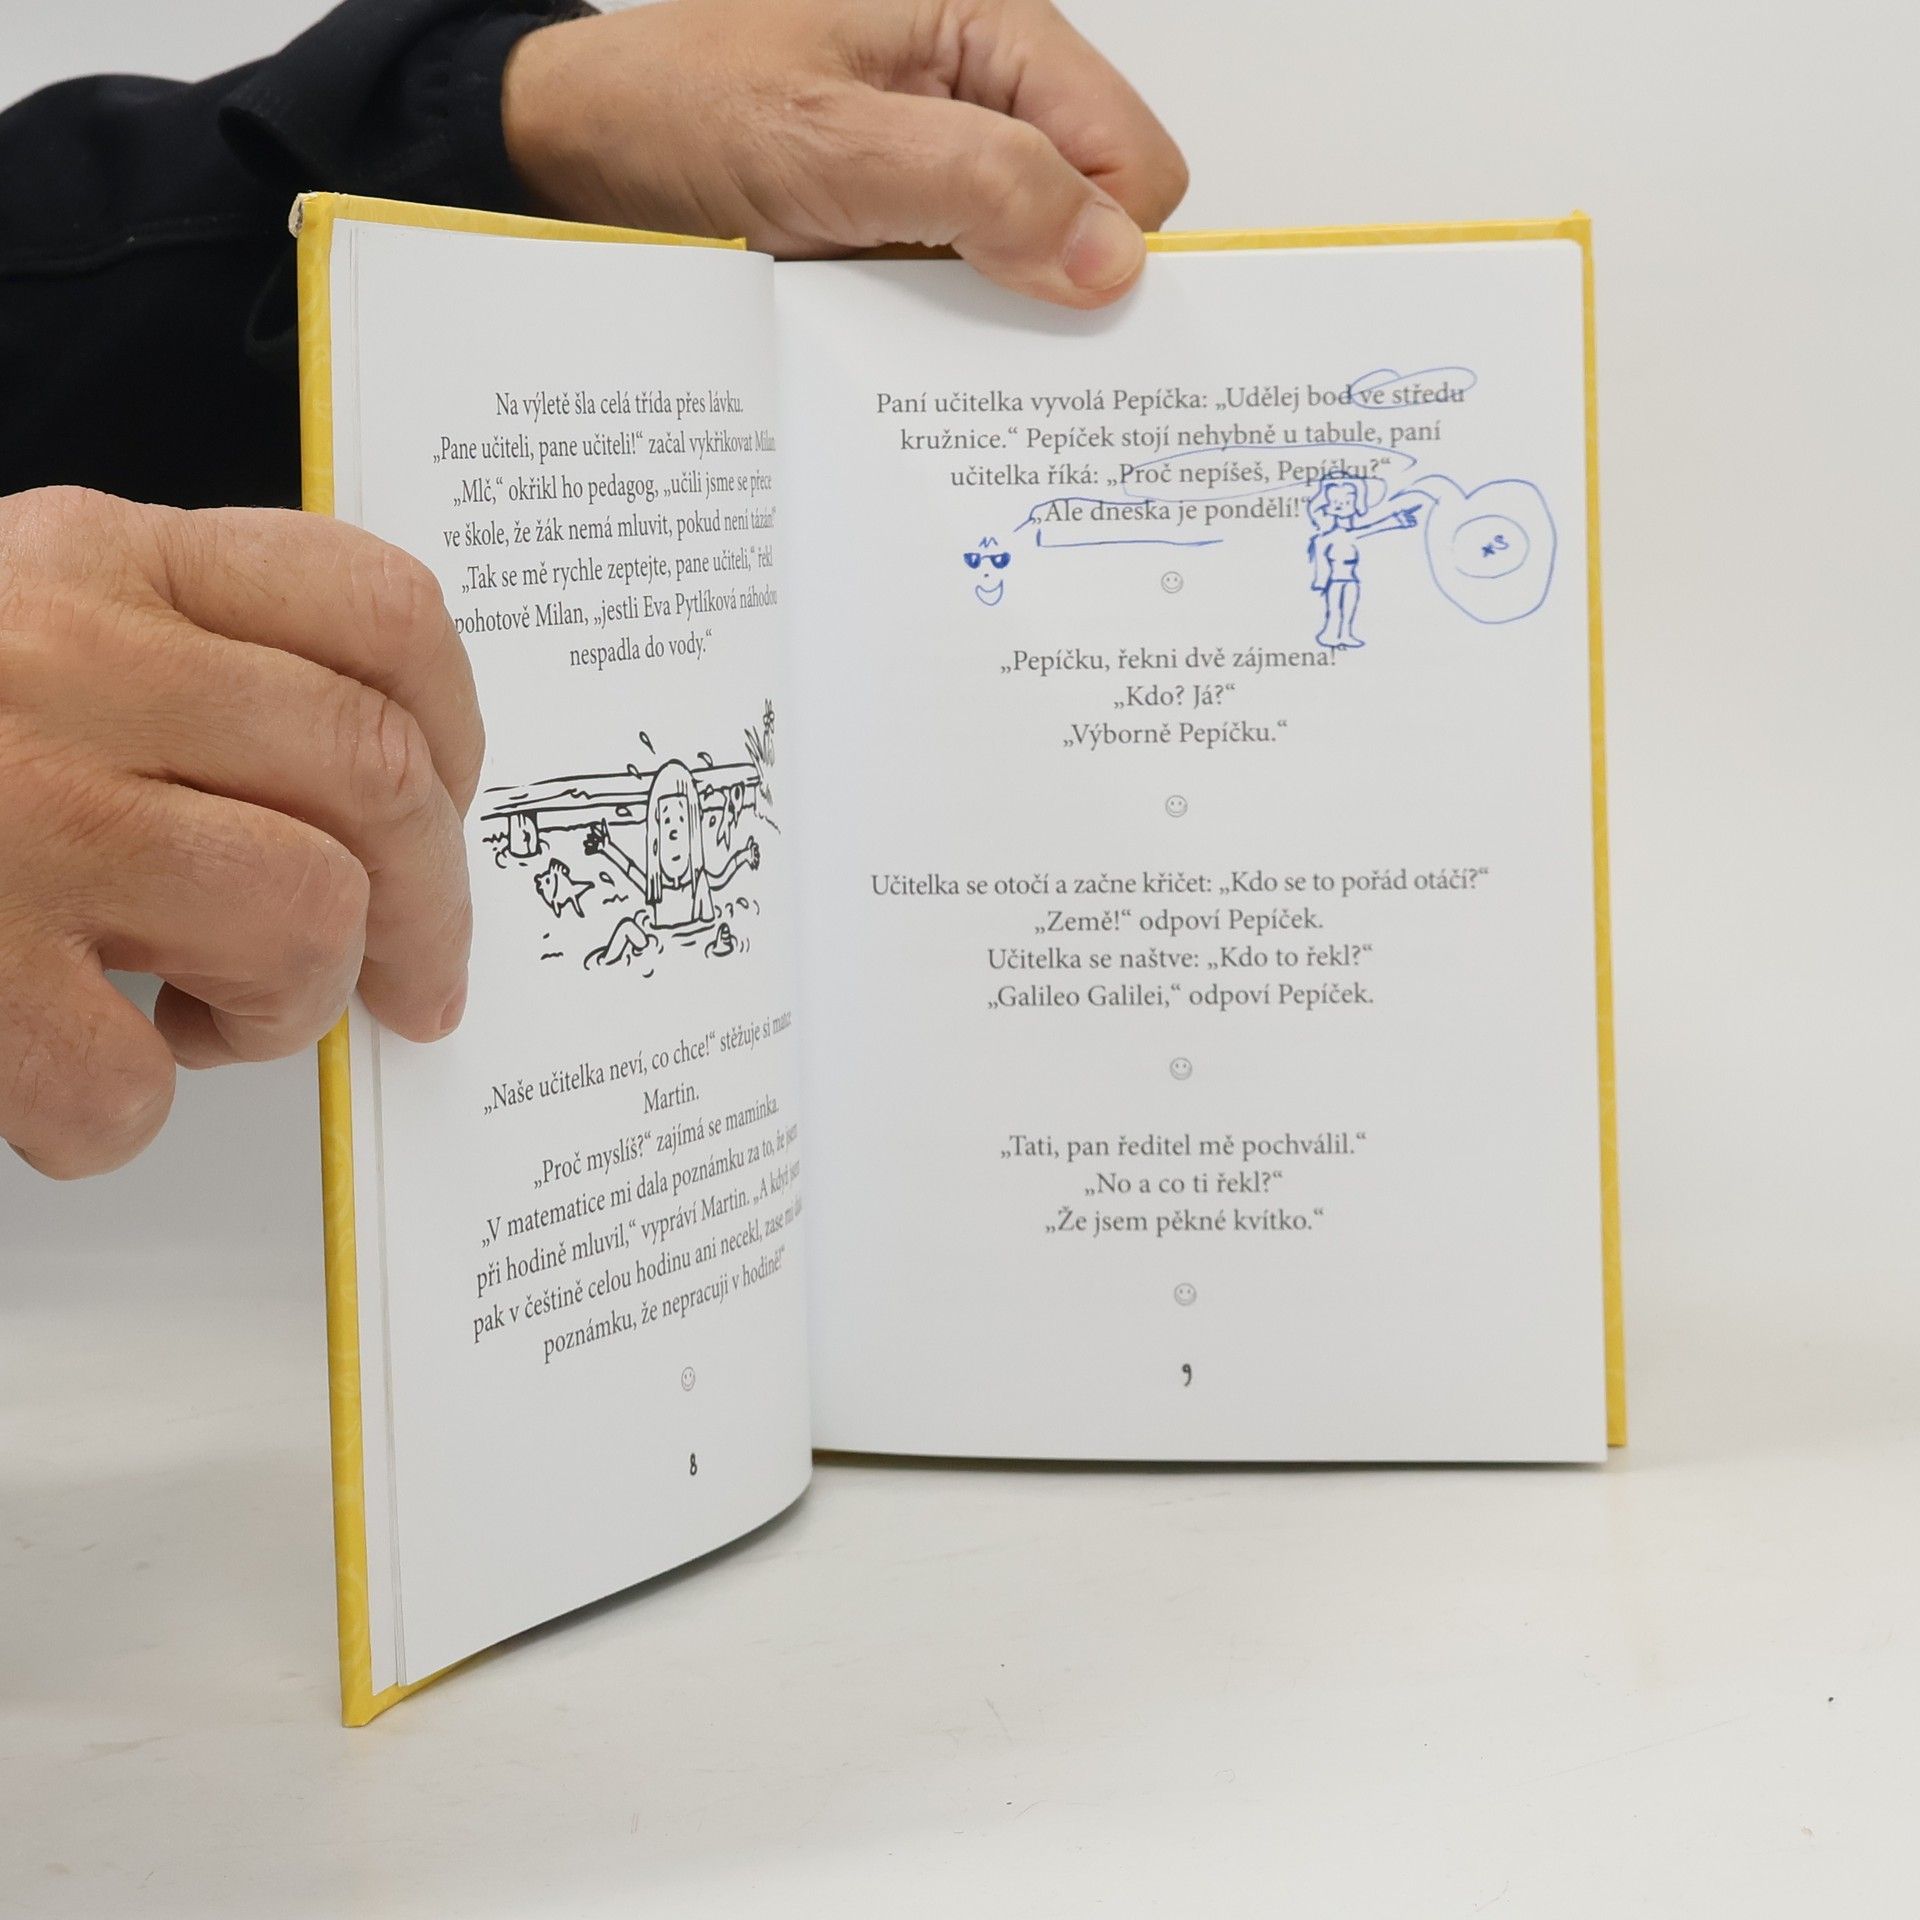 Na výletě šla celá třída přes lávku.
„Pane učiteli, pane učiteli!“ začal vykřikovat Milan
„Mlč,“ okřikl ho pedagog, „učili jsme se přece
ve škole, že žák nemá mluvit, pokud není tázán!“
„Tak se mě rychle zeptejte, pane učiteli,“ řekl
pohotově Milan, „jestli Eva Pytlíková náhodou
nespadla do vody.“
„Naše učitelka neví, co chce!“ stěžuje si matce
Martin.
„Proč myslíš?“ zajímá se maminka.
„V matematice mi dala poznámku za to, že jsem
při hodině mluvil,“ vypráví Martin. „A když jsem
pak v češtině celou hodinu ani necekl, zase mi dala
poznámku, že nepracuji v hodině!“
8
Paní učitelka vyvolá Pepíčka: „Udělej bod ve středu
kružnice.“ Pepíček stojí nehybně u tabule, paní
učitelka říká: „Proč nepíšeš, Pepíčku?“
„Ale dneska je pondělí!“
„Pepíčku, řekni dvě zájmena!“
„Kdo? Já?“
„Výborně Pepíčku.“
Učitelka se otočí a začne křičet: „Kdo se to pořád otáčí?“
„Země!“ odpoví Pepíček.
Učitelka se naštve: „Kdo to řekl?“
„Galileo Galilei,“ odpoví Pepíček.
„Tati, pan ředitel mě pochválil.“
„No a co ti řekl?“
„Že jsem pěkné kvítko.“
9